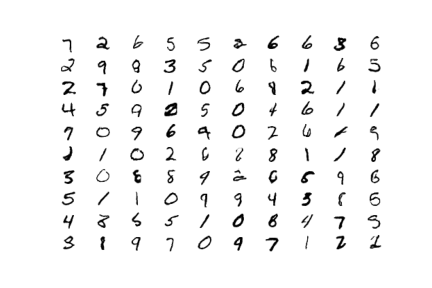 7 2 6 5 5 2 6 6 3 6
2 9 8 3 5 0 6 1 6 5
2 7 0 1 0 6 8 2 1 1
4 5 9 2 5 0 4 6 1 1
7 0 9 6 9 0 2 6 9
1 0 2 6 8 8 1 1 8
3 0 8 8 9 2 6 6 9 6
5 1 1 0 9 9 4 3 8 5
4 8 6 5 1 0 8 4 7 5
3 1 9 7 0 9 7 1 2 1